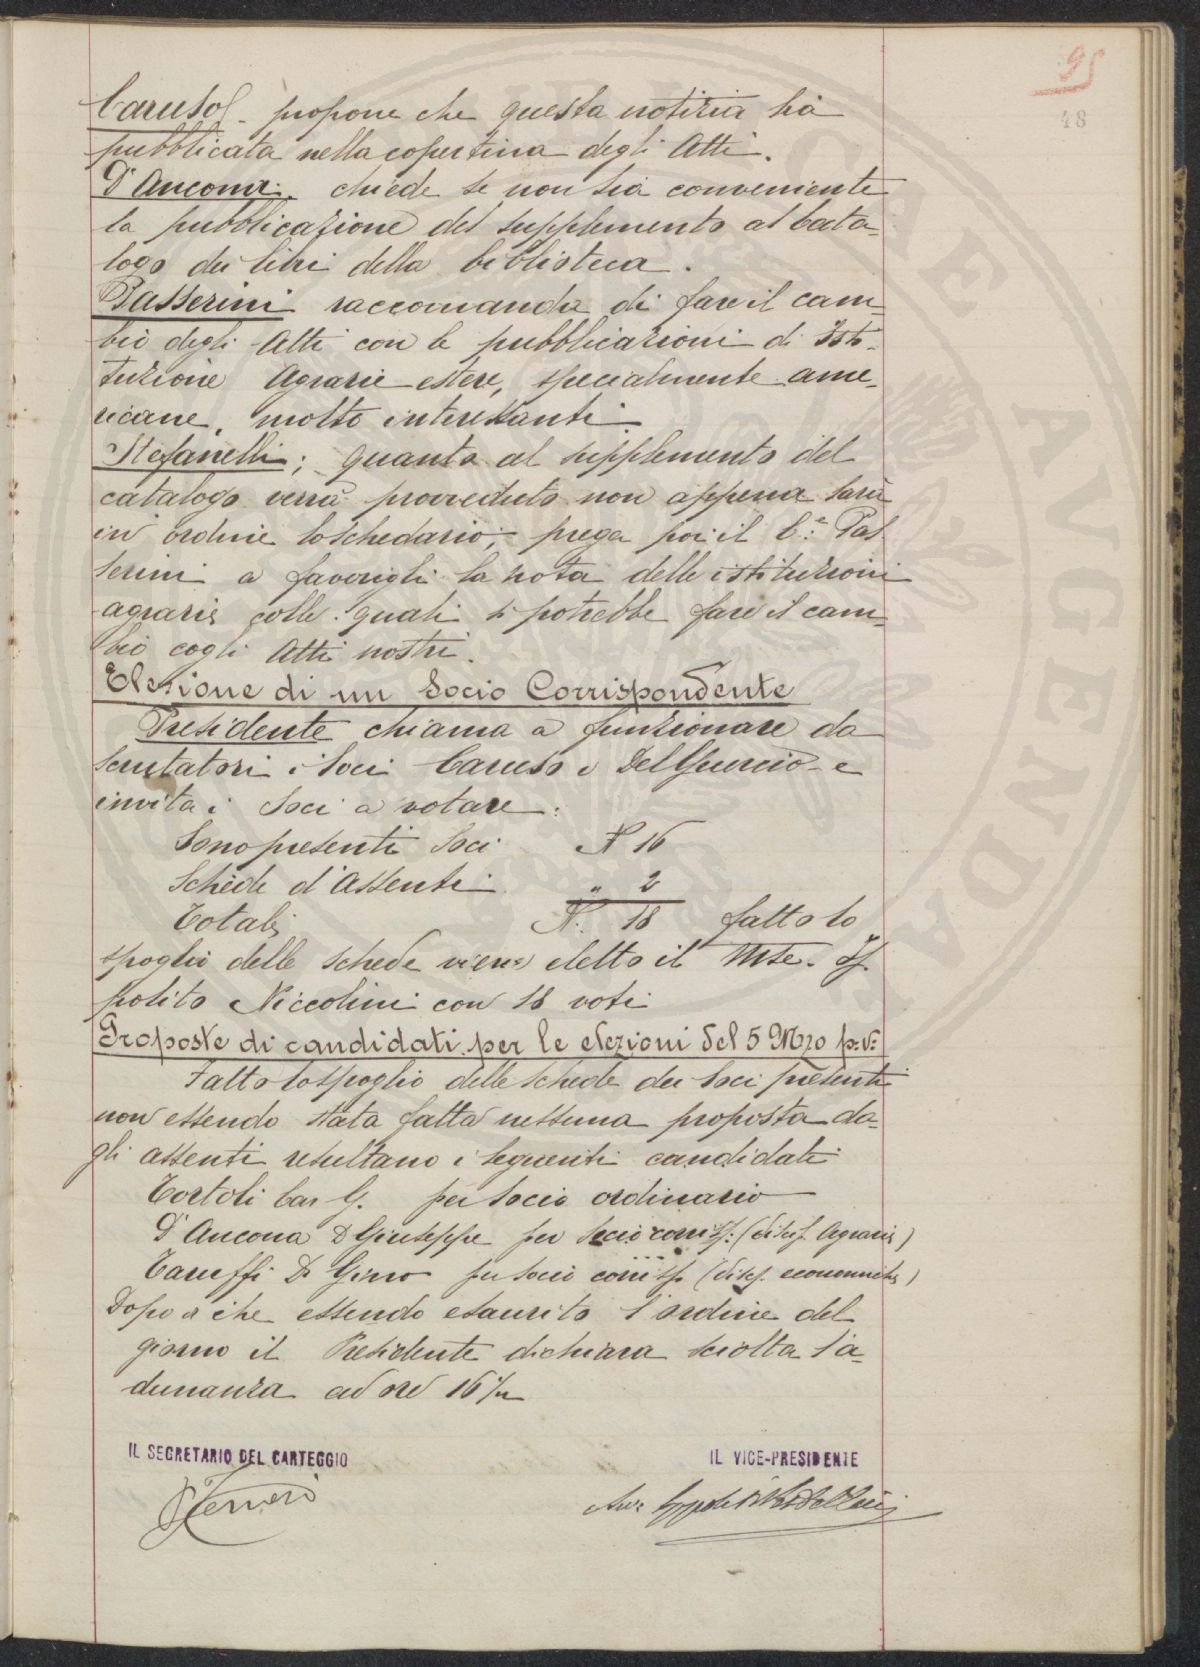 95
48
Caruso - propone che questa notizia sia
pubblicata nella copertina degli Atti.
D'Ancona. chiede se non sia conveniente
la pubblicazione del supplemento al Cata-
logo dei libri della biblioteca.
Passerini raccomanda di fare il cam-
bio degli Atti con le pubblicazioni di Isti-
tuzione Agrarie estere, specialmente ame-
ricane, molto interessanti
Stefanelli; quanto al supplemento del
catalogo verrà provveduto non appena sarà
in ordine lo schedario; prega poi il C.e Pas
serini a favorirgli la nota delle istituzioni
agrarie colle quali si potrebbe fare il cam-
bio cogli Atti nostri.
Elezione di un Socio Corrispondente
Presidente chiama a funzionare da
scrutatori i Soci Caruso e Del Guercio e
invita i Soci a votare:
Sono presenti Soci N 16
Schede d'Assenti " 2
Totale N. 18 fatto lo
spoglio delle schede viene eletto il Mse. Ip
polito Niccolini con 18 voti
Proposte di candidati per le elezioni del 5 Mzo p.v.
Fatto lo spoglio delle schede dei Soci presenti
non essendo stata fatta nessuna proposta da-
gli assenti resultano i seguenti candidati
Tortoli Cav G. per Socio ordinario
D'Ancona D Giuseppe per Socio corrisp: (disip. Agrarie)
Taruffi Dr Gino per Socio corrisp (discp. economiche)
Dopo di che essendo esaurito l'ordine del
giorno il Presidente dichiara sciolta l'a-
dunanza ad ore 16 ½
IL SEGRETARIO DEL CARTEGGIO IL VICE-PRESIDENTE